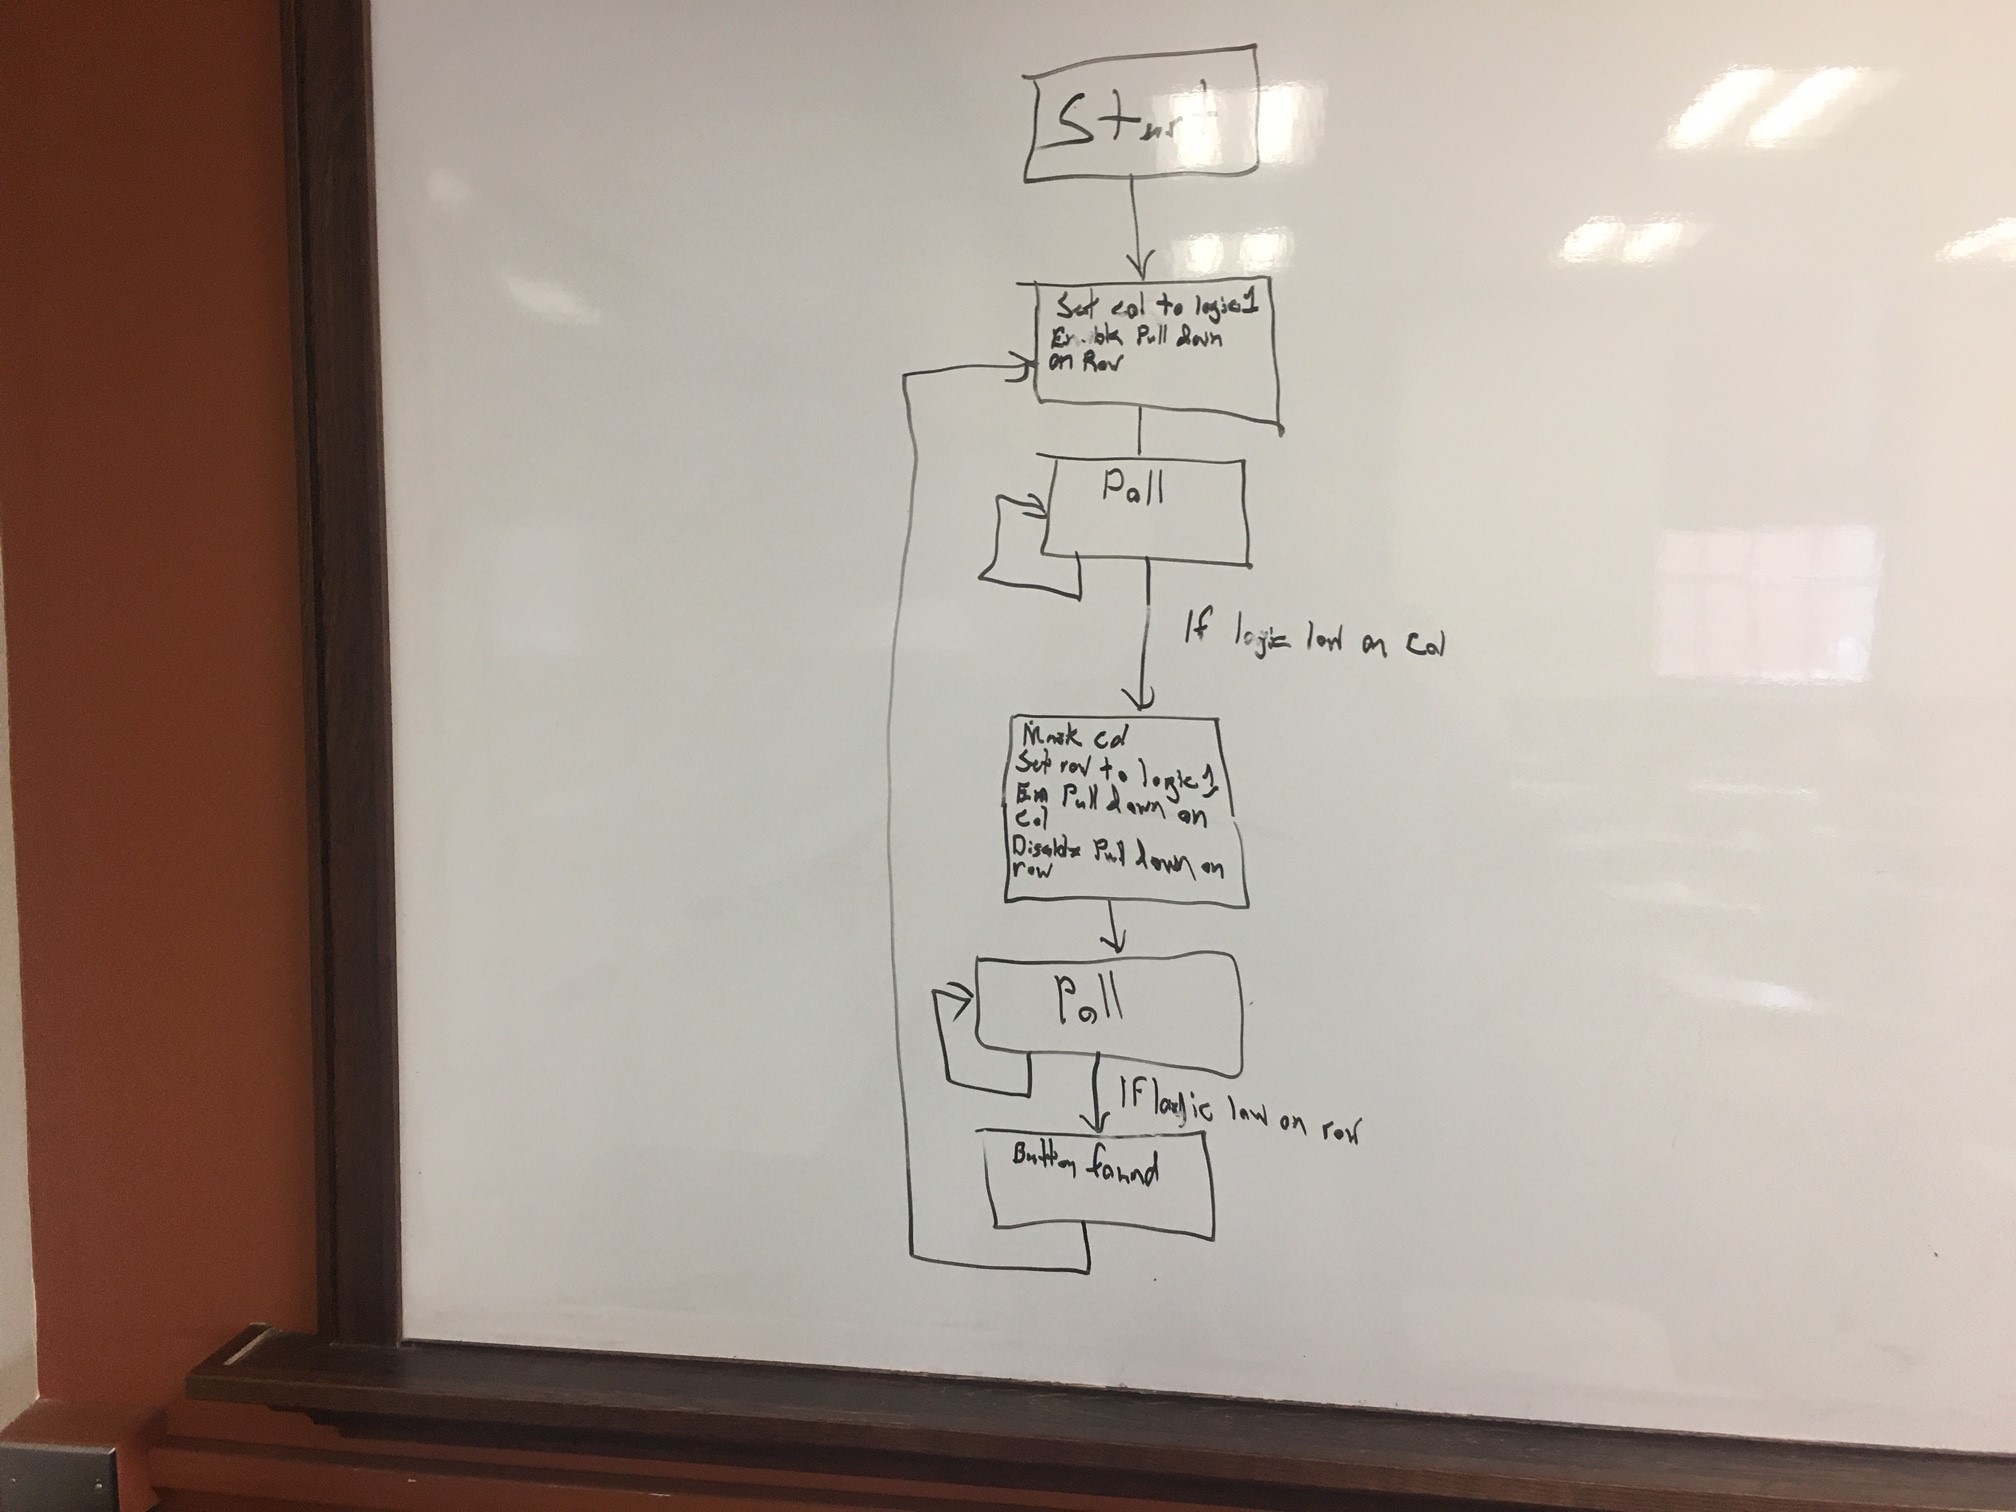 Start
Set col to logic 1
Enable Pull down
on Row
Poll
If logic low on Col
Mark col
Set row to logic 1
En Pull down on
Col
Disable Pull down on
row
Poll
If logic low on row
Button found